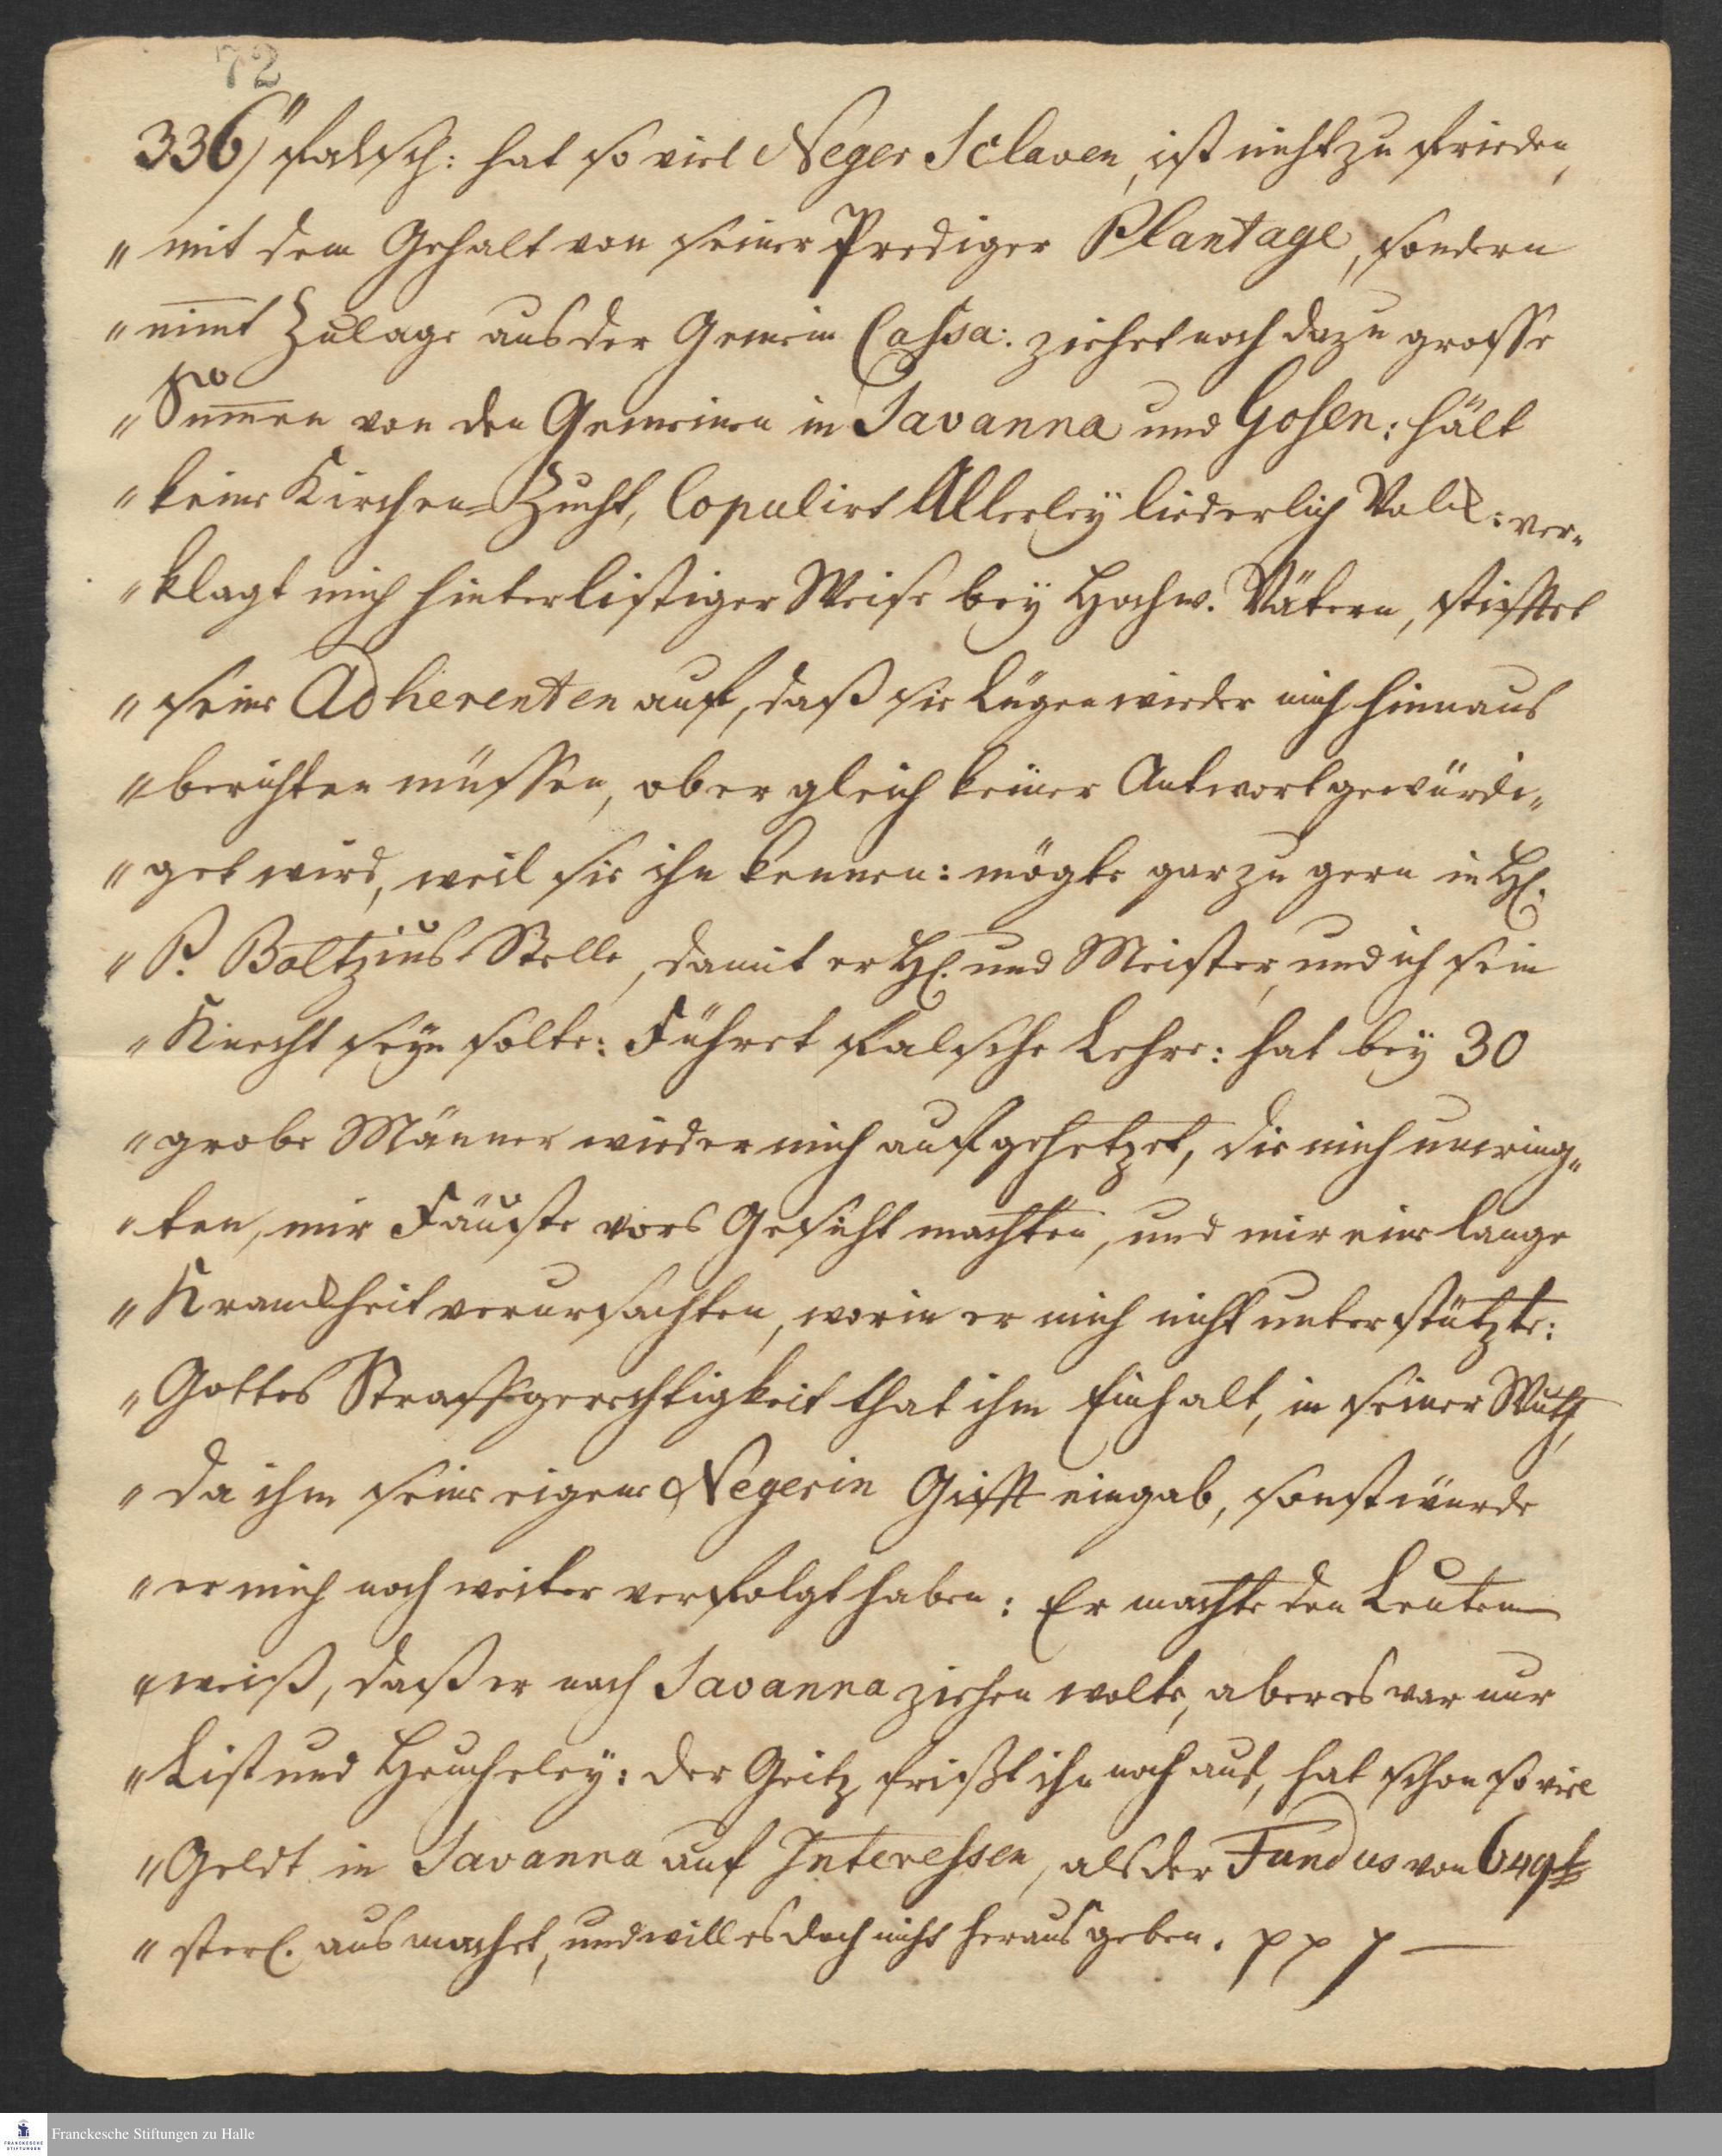 72
336) "falsch: hat so viel Neger Sclaven, ist nicht zu frieden,
" mit dem Gehalt von seiner Prediger Plantage, sondern
" nim̅t Zulage aus der Gemein Cassa: ziehet noch dazu grosse
" Sum̅en von den Gemeinen in Savanna und Gosen: hält
" keine Kirchen-Zucht, Copulirt Allerley liederlich Volck: ver-
" klagt mich hinterlistiger Weise bey Hochw. Vätern, stifftet
" seine Adherenten auf, daß sie Lügen wieder mich hinnaus
" berichten müssen, ob er gleich keiner Antwort gewürdi-
" get wird, weil sie ihn kennen: mögte gar zu gern in H.
" P. Boltzius Stelle, damit er H. und Meister, und ich sein
" Knecht seyn solte: Führet falsche Lehre: hat bey 30
" grobe Männer wieder mich aufgehetzet, die mich umring-
" ten, mir Fäuste vors Gesicht machten, und mir eine lange
" Kranckheit verursachten, worin er mich nicht unterstützte:
" Gottes Straffgerechtigkeit that ihm Einhalt, in seiner Wuth,
" da ihm seine eigene Negerin Gifft eingab, sonst würde
" er mich noch weiter verfolgt haben: Er machte den Leuten
" weiß, daß er nach Savanna ziehen wolte, aber es war nur
" List und Heucheley: der Geitz frißt ihn noch auf, hat schon so viel
" Geldt in Savanna auf Interessen, als der Fundus von 649 £
" sterl. ausmachet, und will es doch nicht heraus geben. p p p —
Franckesche Stiftungen zu Halle